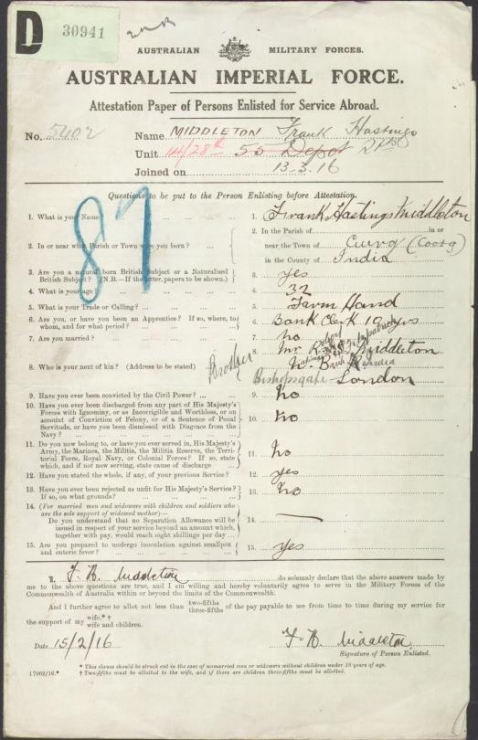 D 30941
AUSTRALIAN MILITARY FORCES.
AUSTRALIAN IMPERIAL FORCE.
Attestation Paper of Persons Enlisted for Service Abroad.
No. 5402 Name MIDDLETON Frank Hastings
Unit 14/28th 55 Depot
Joined on 13.3.16
87
Questions to be put to the Person Enlisting before Attestation.
1. What is your Name? 1. Frank Hastings Middleton
2. In or near what Parish or Town were you born? 2. In the Parish of in or
near the Town of Curg (Coorg)
in the County of India
3. Are you a natural born British Subject or a Naturalised
British Subject? (N.B.—If the latter, papers to be shown.) 3. Yes
4. What is your age? 4. 32
5. What is your Trade or Calling? 5. Farm Hand
6. Are you, or have you been an Apprentice? If so, where, to
whom, and for what period? 6. Bank Clerk 10 yrs
7. Are you married? 7. No
8. Who is your next of kin? (Address to be stated) Brother 8. Mr Middleton
Bank India
Bishopsgate London
9. Have you ever been convicted by the Civil Power? 9. No
10. Have you ever been discharged from any part of His Majesty's
Forces with Ignominy, or as Incorrigible and Worthless, or on
account of Conviction of Felony, or of a Sentence of Penal
Servitude, or have you been dismissed with Disgrace from the
Navy? 10. No
11. Do you now belong to, or have you ever served in, His Majesty's
Army, the Marines, the Militia, the Militia Reserve, the Terri-
torial Force, Royal Navy, or Colonial Forces? If so, state
which, and if not now serving, state cause of discharge 11. No
12. Have you stated the whole, if any, of your previous Service? 12. Yes
13. Have you ever been rejected as unfit for His Majesty's Service?
If so, on what grounds? 13. No
14. (For married men and widowers with children and soldiers who
are the sole support of widowed mother)—
Do you understand that no Separation Allowance will be
issued in respect of your service beyond an amount which,
together with pay, would reach eight shillings per day 14. —
15. Are you prepared to undergo inoculation against smallpox
and enteric fever? 15. Yes
I, F. H. Middleton do solemnly declare that the above answers made by
me to the above questions are true, and I am willing and hereby voluntarily agree to serve in the Military Forces of the
Commonwealth of Australia within or beyond the limits of the Commonwealth.
And I further agree to allot not less than two-fifths three-fifths of the pay payable to me from time to time during my service for
the support of my wife.*† wife and children.
Date 15/2/16 F. H. Middleton
Signature of Person Enlisted.
17002/16.* * This clause should be struck out in the case of unmarried men or widowers without children under 18 years of age.
† Two-fifths must be allotted to the wife, and if there are children three-fifths must be allotted.